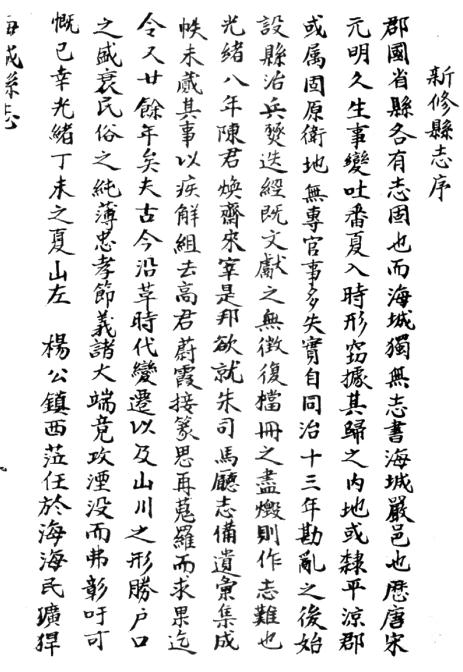 新修縣志序
郡國省縣各有志固也而海城獨無志書海城嚴邑也歷唐宋
元明久生事變吐番夏入時形竊據其歸之內地或隸平涼郡
或属固原衛地無專官事多失實自同治十三年勘亂之後始
設縣治兵燹迭經既文獻之無徵復檔冊之盡燬則作志難也
光緒八年陳君煥齋來宰是邦欲就朱司馬廳志備遺彙集成
帙未蕆其事以疾解組去高君蔚霞接篆思再蒐羅而求果迄
今又廿餘年矣夫古今沿革時代變遷以及山川之形勝户口
之盛衰民俗之純薄忠孝節義諸大端竟攷湮没而弗彰吁可
慨已幸光緒丁未之夏山左 楊公鎮西蒞任於海海民獷猂
海城縣志